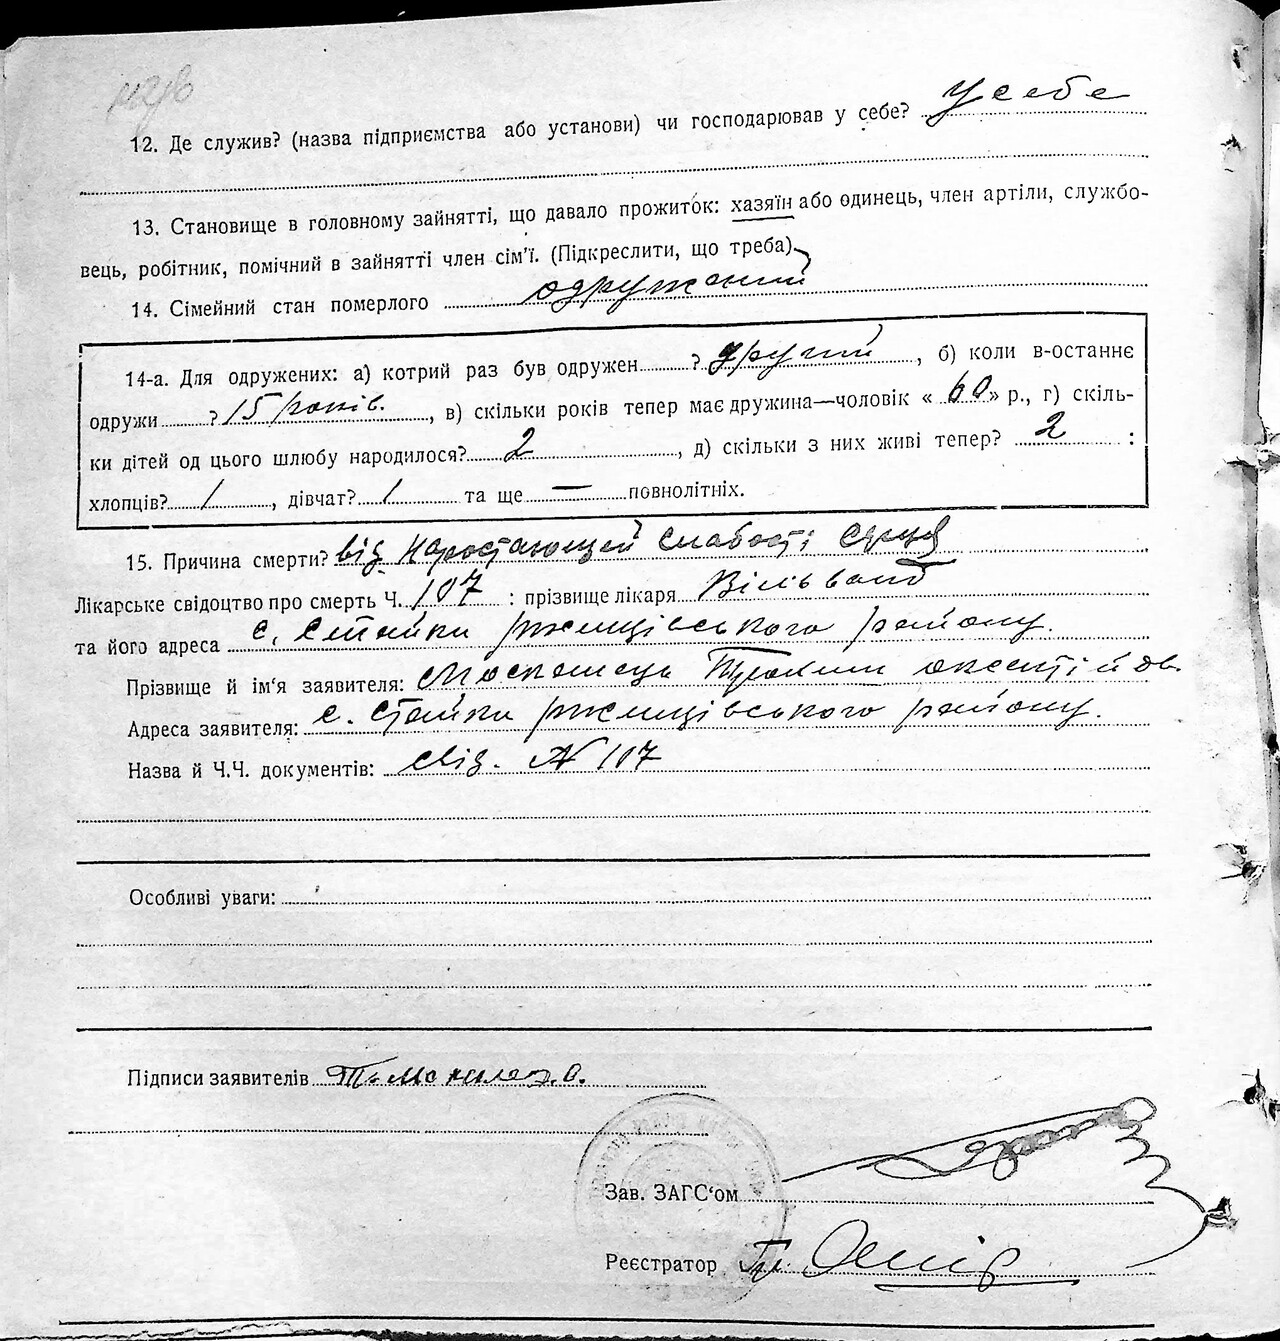 12. Де служив? (назва підприємства або установи) чи господарював у себе? У себе
13. Становище в головному зайнятті, що давало прожиток: хазяїн або одинець, член артіли, службо-
вець, робітник, помічний в зайнятті член сім'ї. (Підкреслити, що треба)
14. Сімейний стан померлого одружений
14-а. Для одружених: а) котрий раз був одружен ? другий, б) коли в-останнє
одружи ? 15 років., в) скільки років тепер має дружина—чоловік « 60 » р., г) скіль-
ки дітей од цього шлюбу народилося? 2, д) скільки з них живі тепер? 2 :
хлопців? 1, дівчат? 1 та ще — повнолітніх.
15. Причина смерти? від наростающей слабості серця
Лікарське свідоцтво про смерть Ч. 107 : прізвище лікаря
та його адреса с. Стайки ржищівського району.
Прізвище й ім'я заявителя: Москалець
Адреса заявителя: с. Стайки ржищівського району.
Назва й Ч.Ч. документів: свід. № 107
Особливі уваги:
Підписи заявителів
Зав. ЗАГС'ом
Реєстратор